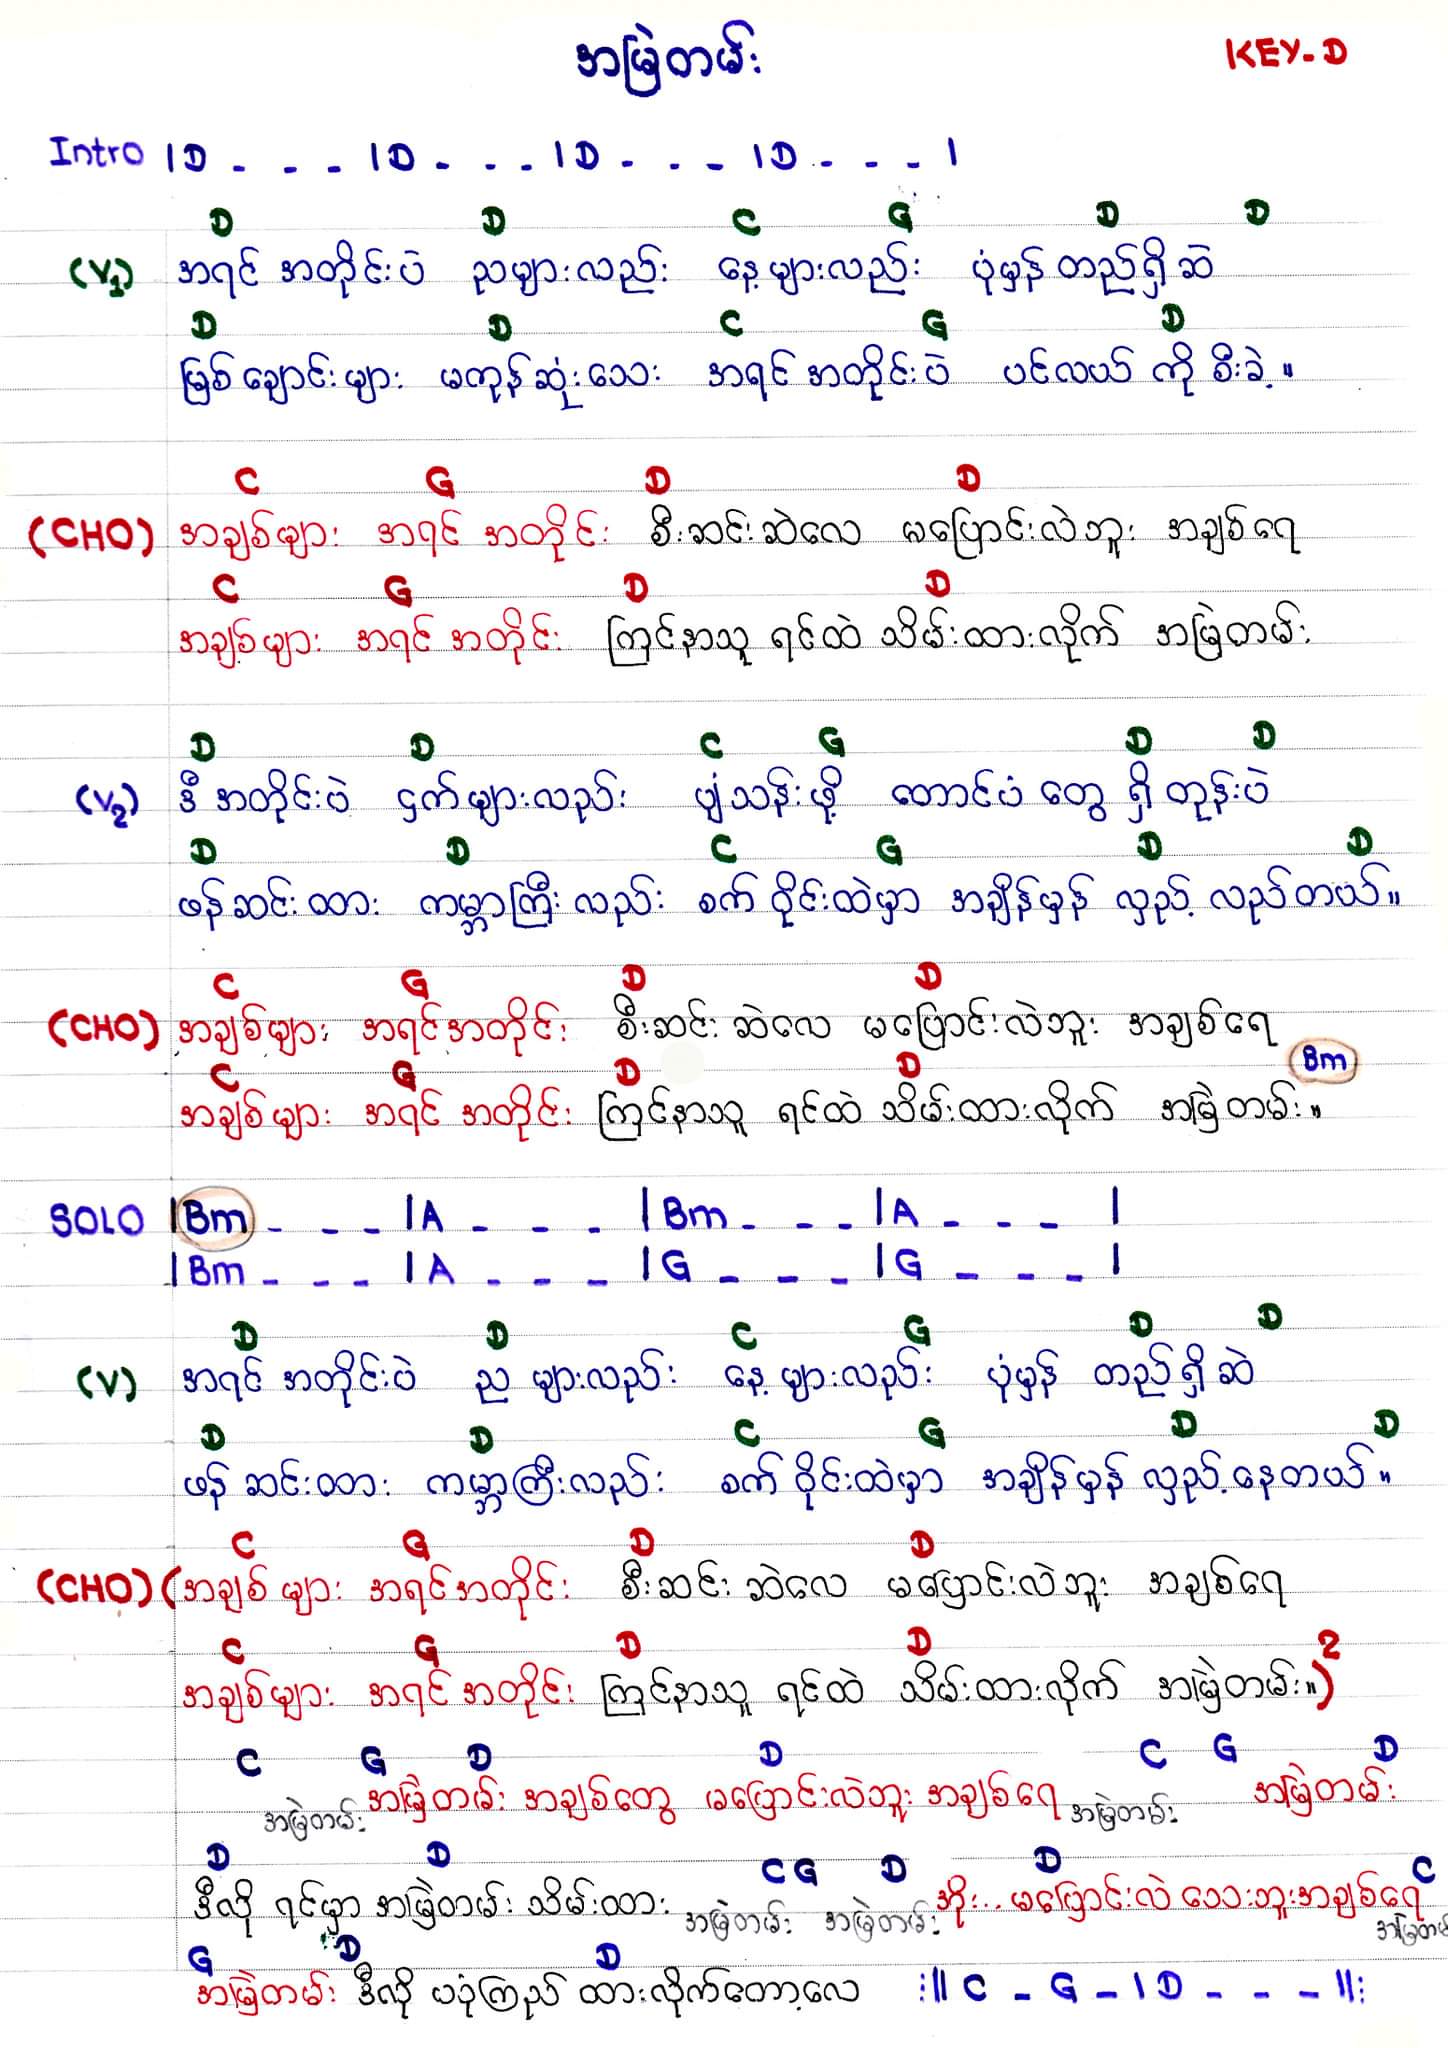 အမြဲတမ်း
KEY-D
Intro |D - - - |D - - - |D - - - |D - - - |
D D C G D D
(V1) အရင် အတိုင်းပဲ ညများလည်း နေ့များလည်း ပုံမှန် တည်ရှိဆဲ
D D C G D
မြစ်ချောင်းများ မကုန်ဆုံးသေး အရင် အတိုင်းပဲ ပင်လယ် ကို စီးခဲ့။
C G D D
(CHO) အချစ်များ အရင် အတိုင်း စီးဆင်းဆဲလေ မပြောင်းလဲဘူး အချစ်ရေ
C G D D
အချစ်များ အရင် အတိုင်း ကြင်နာသူ ရင်ထဲ သိမ်းထားလိုက် အမြဲတမ်း
D D C G D D
(V2) ဒီ အတိုင်းပဲ ငှက်များလည်း ပျံသန်းဖို့ တောင်ပံ တွေ ရှိ တုန်းပဲ
D D C G D D
ဖန်ဆင်းထား ကမ္ဘာကြီးလည်း စက်ဝိုင်းထဲမှာ အချိန်မှန် လှည့် လည်တယ်။
C G D D
(CHO) အချစ်များ အရင်အတိုင်း စီးဆင်း ဆဲလေ မပြောင်းလဲဘူး အချစ်ရေ
C G D D Bm
အချစ်များ အရင် အတိုင်း ကြင်နာသူ ရင်ထဲ သိမ်းထားလိုက် အမြဲတမ်း။
SOLO |Bm - - - |A - - - |Bm - - - |A - - - |
|Bm - - - |A - - - |G - - - |G - - - |
D D C G D D
(V) အရင် အတိုင်းပဲ ည များလည်း နေ့ များလည်း ပုံမှန် တည်ရှိဆဲ
D D C G D D
ဖန် ဆင်းထား ကမ္ဘာကြီးလည်း စက် ဝိုင်းထဲမှာ အချိန်မှန် လှည့်နေတယ်။
C G D D
(CHO) (အချစ် များ အရင်အတိုင်း စီးဆင်း ဆဲလေ မပြောင်းလဲဘူး အချစ်ရေ
C G D D
အချစ်များ အရင်အတိုင်း ကြင်နာသူ ရင်ထဲ သိမ်းထားလိုက် အမြဲတမ်း။)2
C G D D C G D
အမြဲတမ်း အမြဲတမ်း အချစ်တွေ မပြောင်းလဲဘူး အချစ်ရေ အမြဲတမ်း အမြဲတမ်း
D D C G D D C
ဒီလို ရင်မှာ အမြဲတမ်း သိမ်းထား အမြဲတမ်း အမြဲတမ်း အိုး... မပြောင်းလဲ သေးဘူးအချစ်ရေ အမြဲတမ်
G D D
အမြဲတမ်း ဒီလို ယုံကြည် ထားလိုက်တော့လေ :|| C - G - | D - - - ||: